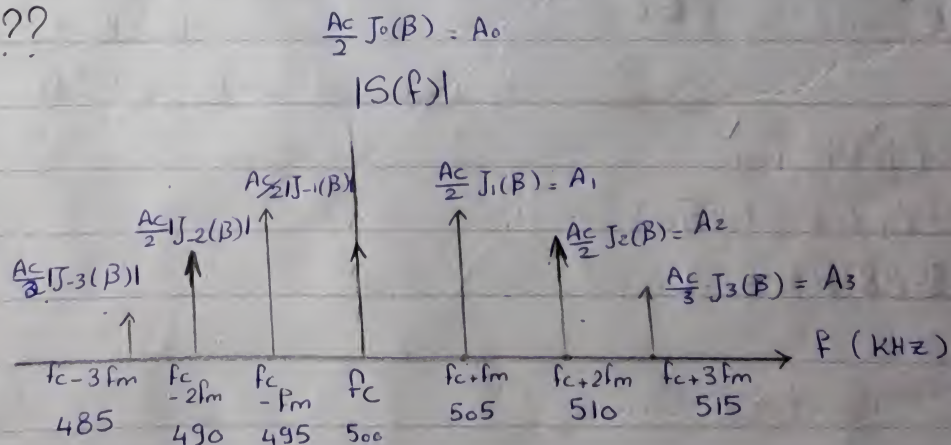 ??
Ac/2 J₀(β) = A₀
|S(f)|
Ac/2 |J₋₁(β)|
Ac/2 J₁(β) = A₁
Ac/2 |J₋₂(β)|
Ac/2 J₂(β) = A₂
Ac/3 |J₋₃(β)|
Ac/3 J₃(β) = A₃
f (KHZ)
fc-3fm fc-2fm fc-fm fc fc+fm fc+2fm fc+3fm
485 490 495 500 505 510 515